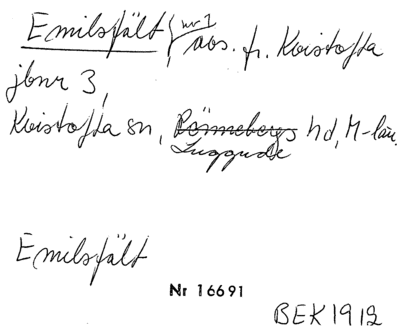 Emilsfält nr 1 avs. fr. Kvistofta
jbnr 3,
Kvistofta sn, Rönnebergs hd, M-län.
Luggude
Emilsfält
Nr 16691
BEK 1912